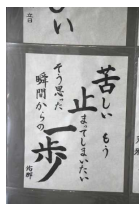 い
音
苦しい もう
止まってしまいたい
そう思った
瞬間からの
一歩!